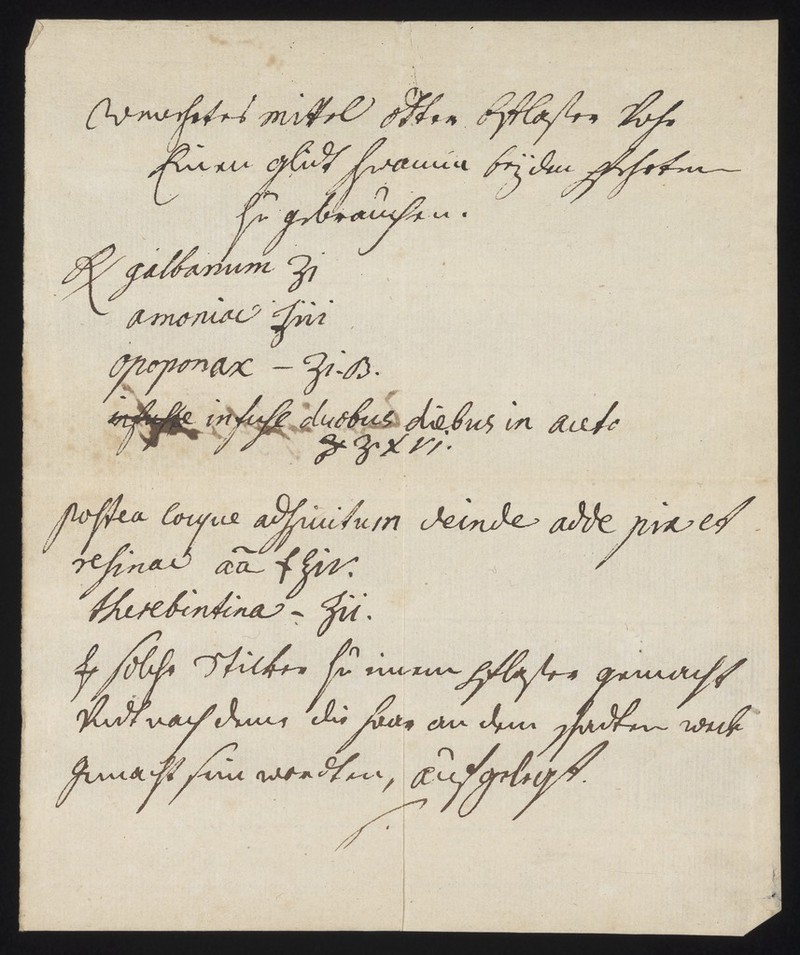 mittel oder Pflaster Vohr
Einen glidt schwamm beÿ den Pferten
zu gebrauchen.
℞ galbanum ʒi
amoniac ℥iii
opoponax – ʒi-ß.
infuse duobus diebus in aceto
ʒxvi.
postea coque adspissitum deinde adde pix et
resinae aã ℥iv.
therebintina – ℥ii.
solche Stücker zu einem Pflaster gemacht
Undt nach deme die haar an dem schadten weck
gemacht sein wordten, aufgelegt.